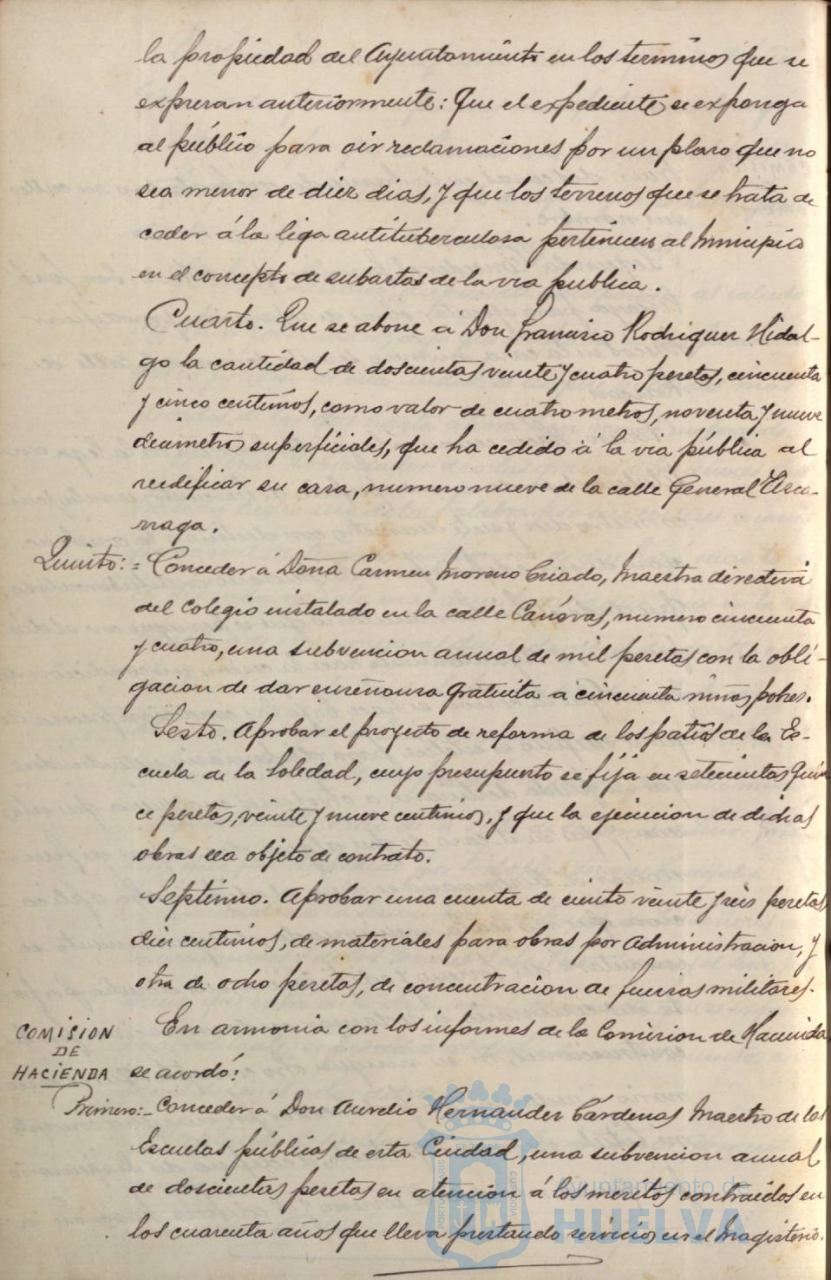 la propiedad del Ayuntamiento en los terminos que se
expresan anteriormente: Que el expediente se exponga
al público para oir reclamaciones por un plazo que no
sea menor de diez dias, y que los terrenos que se trata de
ceder á la liga antituberculosa pertenecen al Municipio
en el concepto de subastas de la via publica.
Cuarto. Que se abone á Don Francisco Rodriguez Hidal-
go la cantidad de doscientas veinte y cuatro pesetas, cincuenta
y cinco centimos, como valor de cuatro metros, noventa y nueve
decimetros superficiales, que ha cedido á la via pública al
reedificar su casa, numero nueve de la calle General Azca-
rraga.
Quinto: = Conceder á Doña Carmen Moreno Criado, Maestra directora
del Colegio instalado en la calle Canovas, numero cincuenta
y cuatro, una subvencion anual de mil pesetas con la obli-
gacion de dar enseñanza gratuita a cincuenta niños pobres.
Sesto. Aprobar el proyecto de reforma de los patios de la Es-
cuela de la Soledad, cuyo presupuesto se fija en setecientas quin
ce pesetas, veinte y nueve centimos, y que la ejecucion de dichas
obras sea objeto de contrato.
Septimo. Aprobar una cuenta de ciento veinte y seis pesetas,
diez centimos, de materiales para obras por administracion, y
otra de ocho pesetas, de concentracion de fuerzas militares.
COMISION
DE
HACIENDA
En armonia con los informes de la Comision de Hacienda,
se acordó:
Primero:- Conceder á Don Aurelio Hernandez Cárdenas Maestro de las
Escuelas públicas de esta Ciudad, una subvencion anual
de doscientas pesetas en atencion á los meritos contraidos en
los cuarenta años que lleva prestando servicios en el Magisterio.
Ayuntamiento de
HUELVA